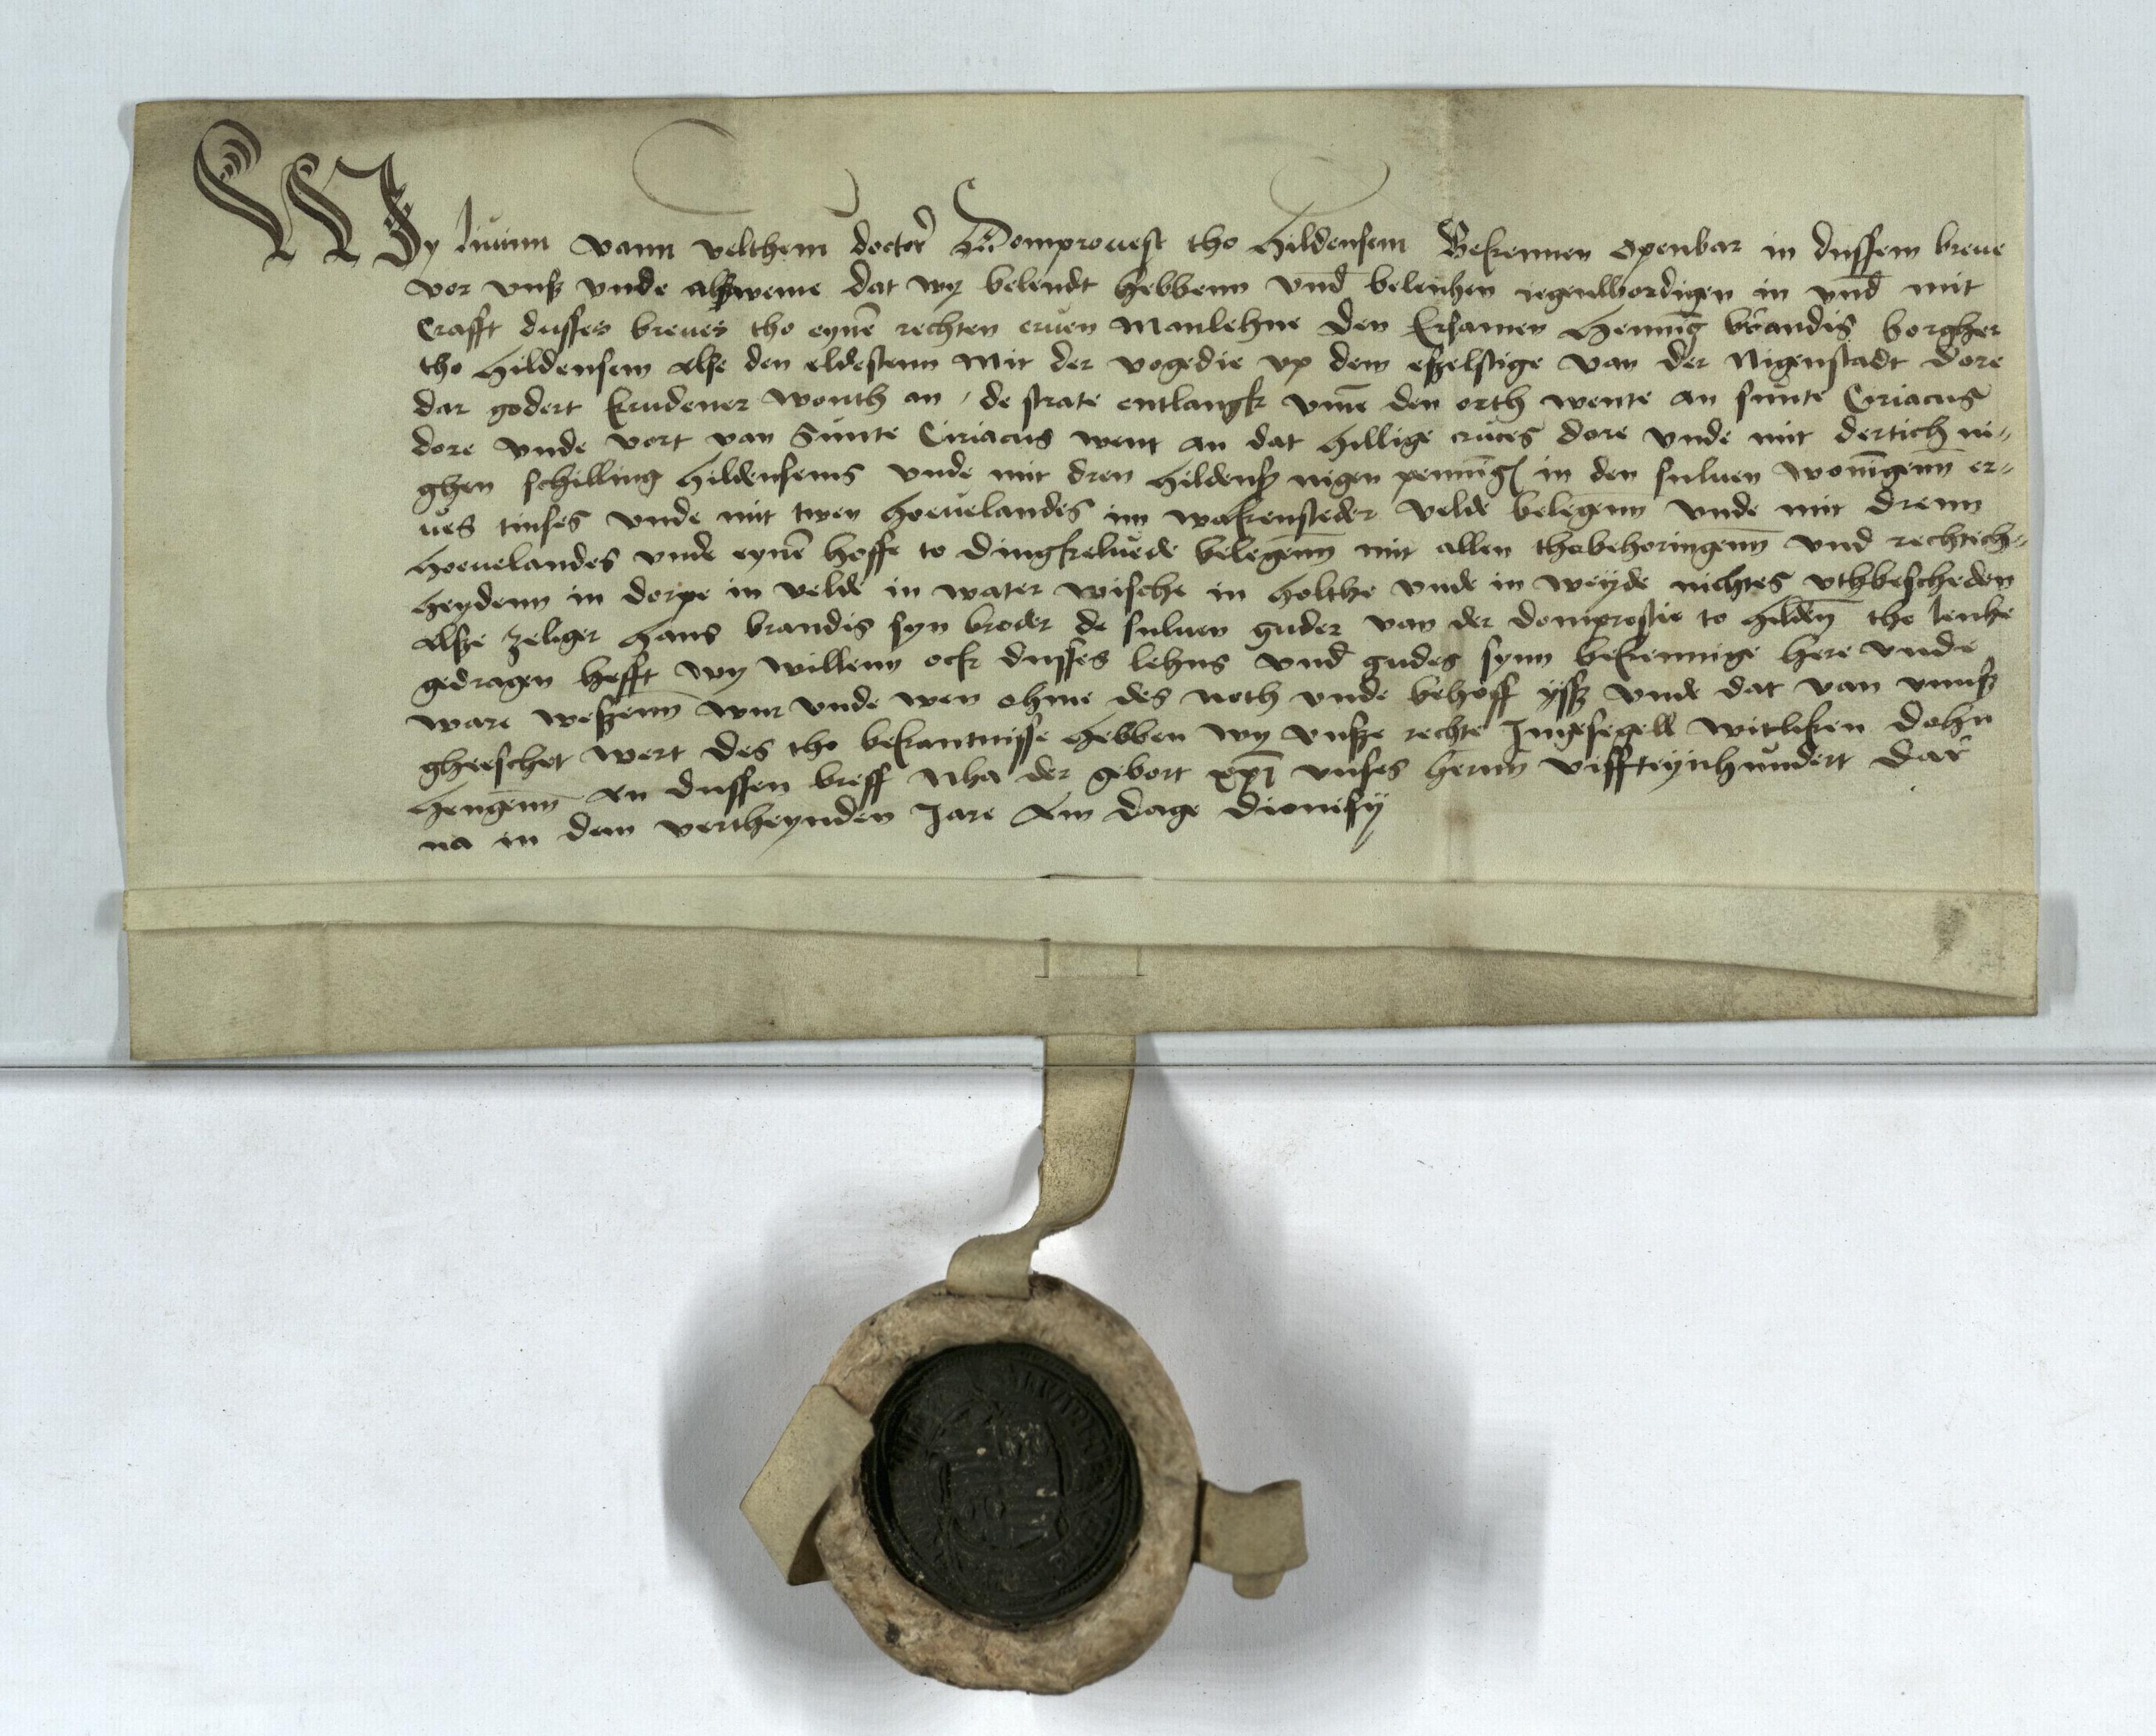 Wy liuinn vann velthem doctor Domprouest tho Hildensem Bekennen openbar in dussem breue
vor vnß vnde alßweme dat wy belendt hebbenn vnd belenhen iegenwordigen in vnd mit
Crafft dusses breues tho eynē rechten eruen Manlehne den Ersamen Hennīg brandis borgher
tho Hildensem alse den eldestenn Mit der vogedie vp dem eßelstige van der Nigenstadt dore
dar godert krudener wonth an / de strate entlangk vmē den orth wente an sunte Ciriacus
dore vnde vort van Sunte Ciriacus went an dat hillige cruces dore vnde mit dertich ni=
ghen schilling hildensems vnde mit dren hildenß nigen pennīg in den suluen wonīgenn er=
ues tinses vnde mit twen hoeuelandes im wakensteder velde belegenn vnde mit drenn
hoeuelandes vnde eynē hoffe to dingkeluede belegenn mit allen thobehoringenn vnd rechtich=
heydenn in dorpe in velde in water wische in holthe vnde in weyde nichtes vthbescheden
alße zeliger hans brandis syn broder de suluen guder van der domprostie to hilden tho lenhe
gedragen hefft wy willenn ock dusses lehns vnd gudes synn bekennige here vnde
ware weßenn wur vnde wen ohme des noth vnde behoff yßs vnde dat van vnnß
gheeschet wert des tho bekantnisse hebben wy vnße rechte Ingesegell witliken dohn
hengenn an dussen breff Nha der gebort xpī vnses hernn viffteynhundert dar
na in dem vertheynden Jare Am dage dionisy